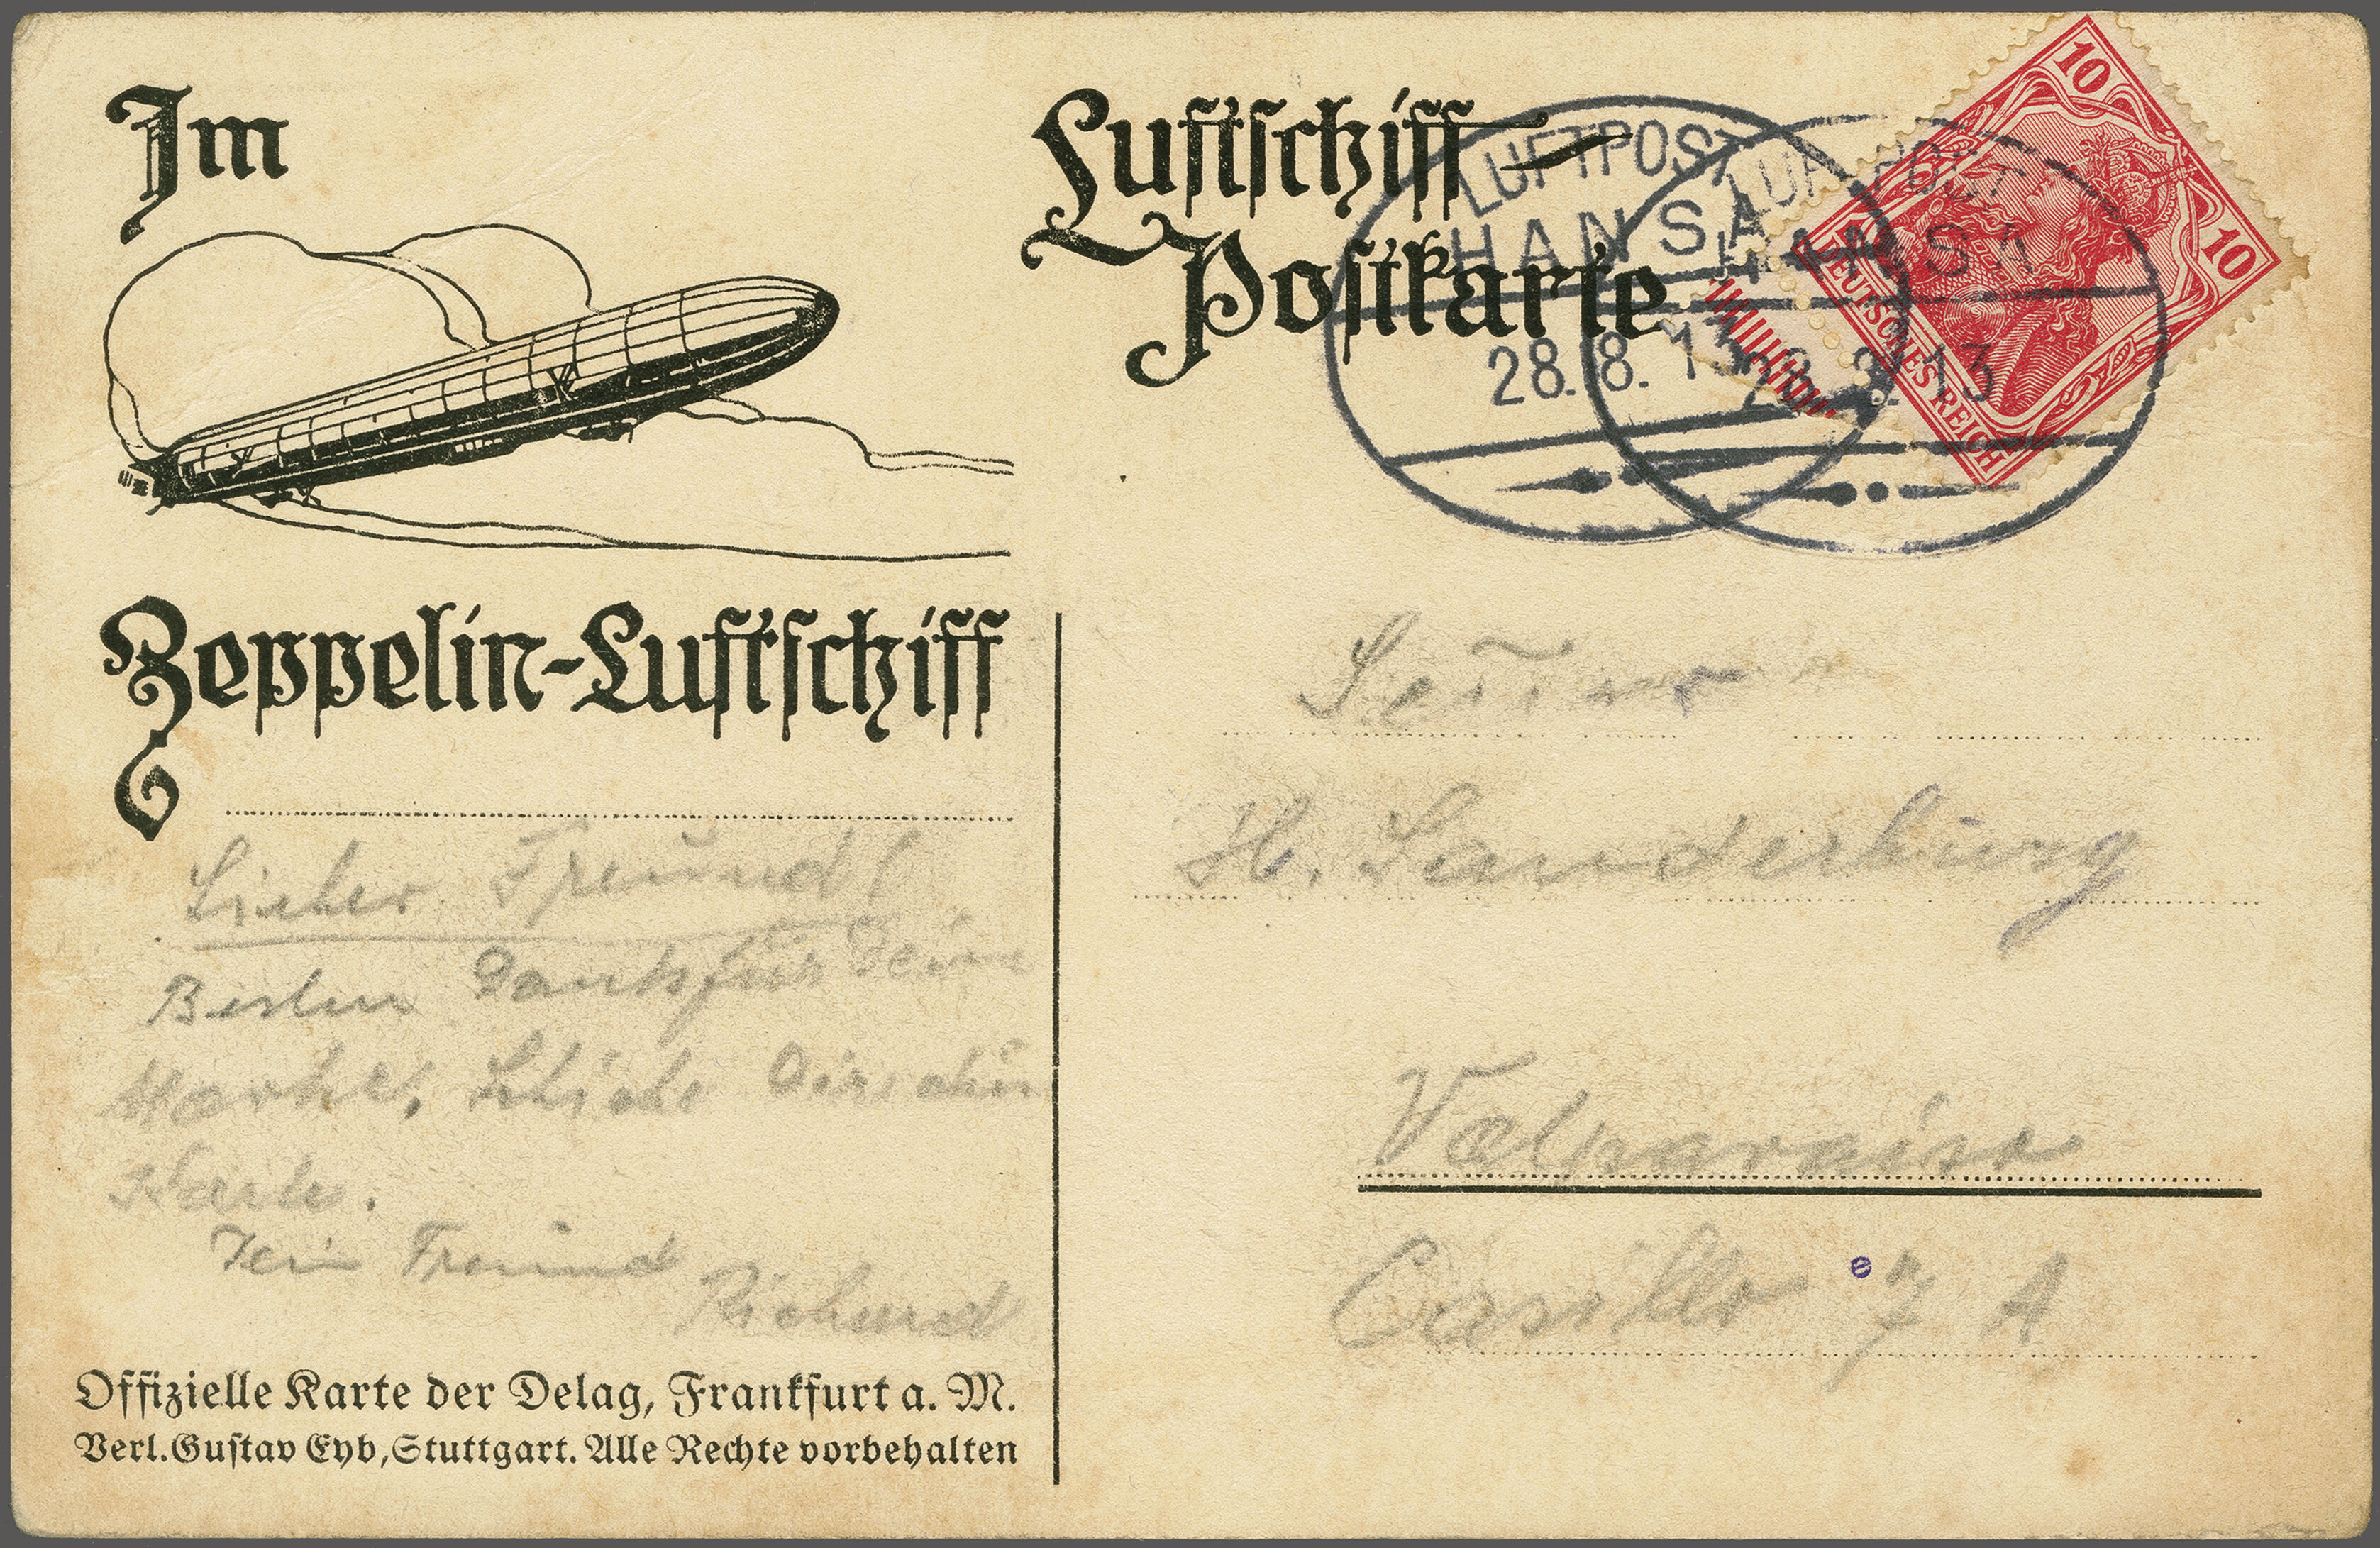 Im
Zeppelin-Luftschiff
Luftschiff-
Postkarte
LUFTPOST
HANSA
28.8.13
LUFTPOST
HANSA
28.8.13
10
10
DEUTSCHES REICH
Señor
H. Sanderburg
Valparaiso
Casilla 7 A
Lieber Freund!
Besten Dank für Deine
Marke, schicke Dir eine
Karte.
Dein Freund
Richard
Offizielle Karte der Delag, Frankfurt a. M.
Verl. Gustav Eyb, Stuttgart. Alle Rechte vorbehalten